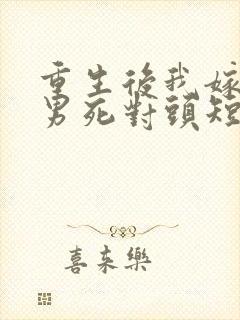 重生後我嫁
男死對頭短
喜來樂